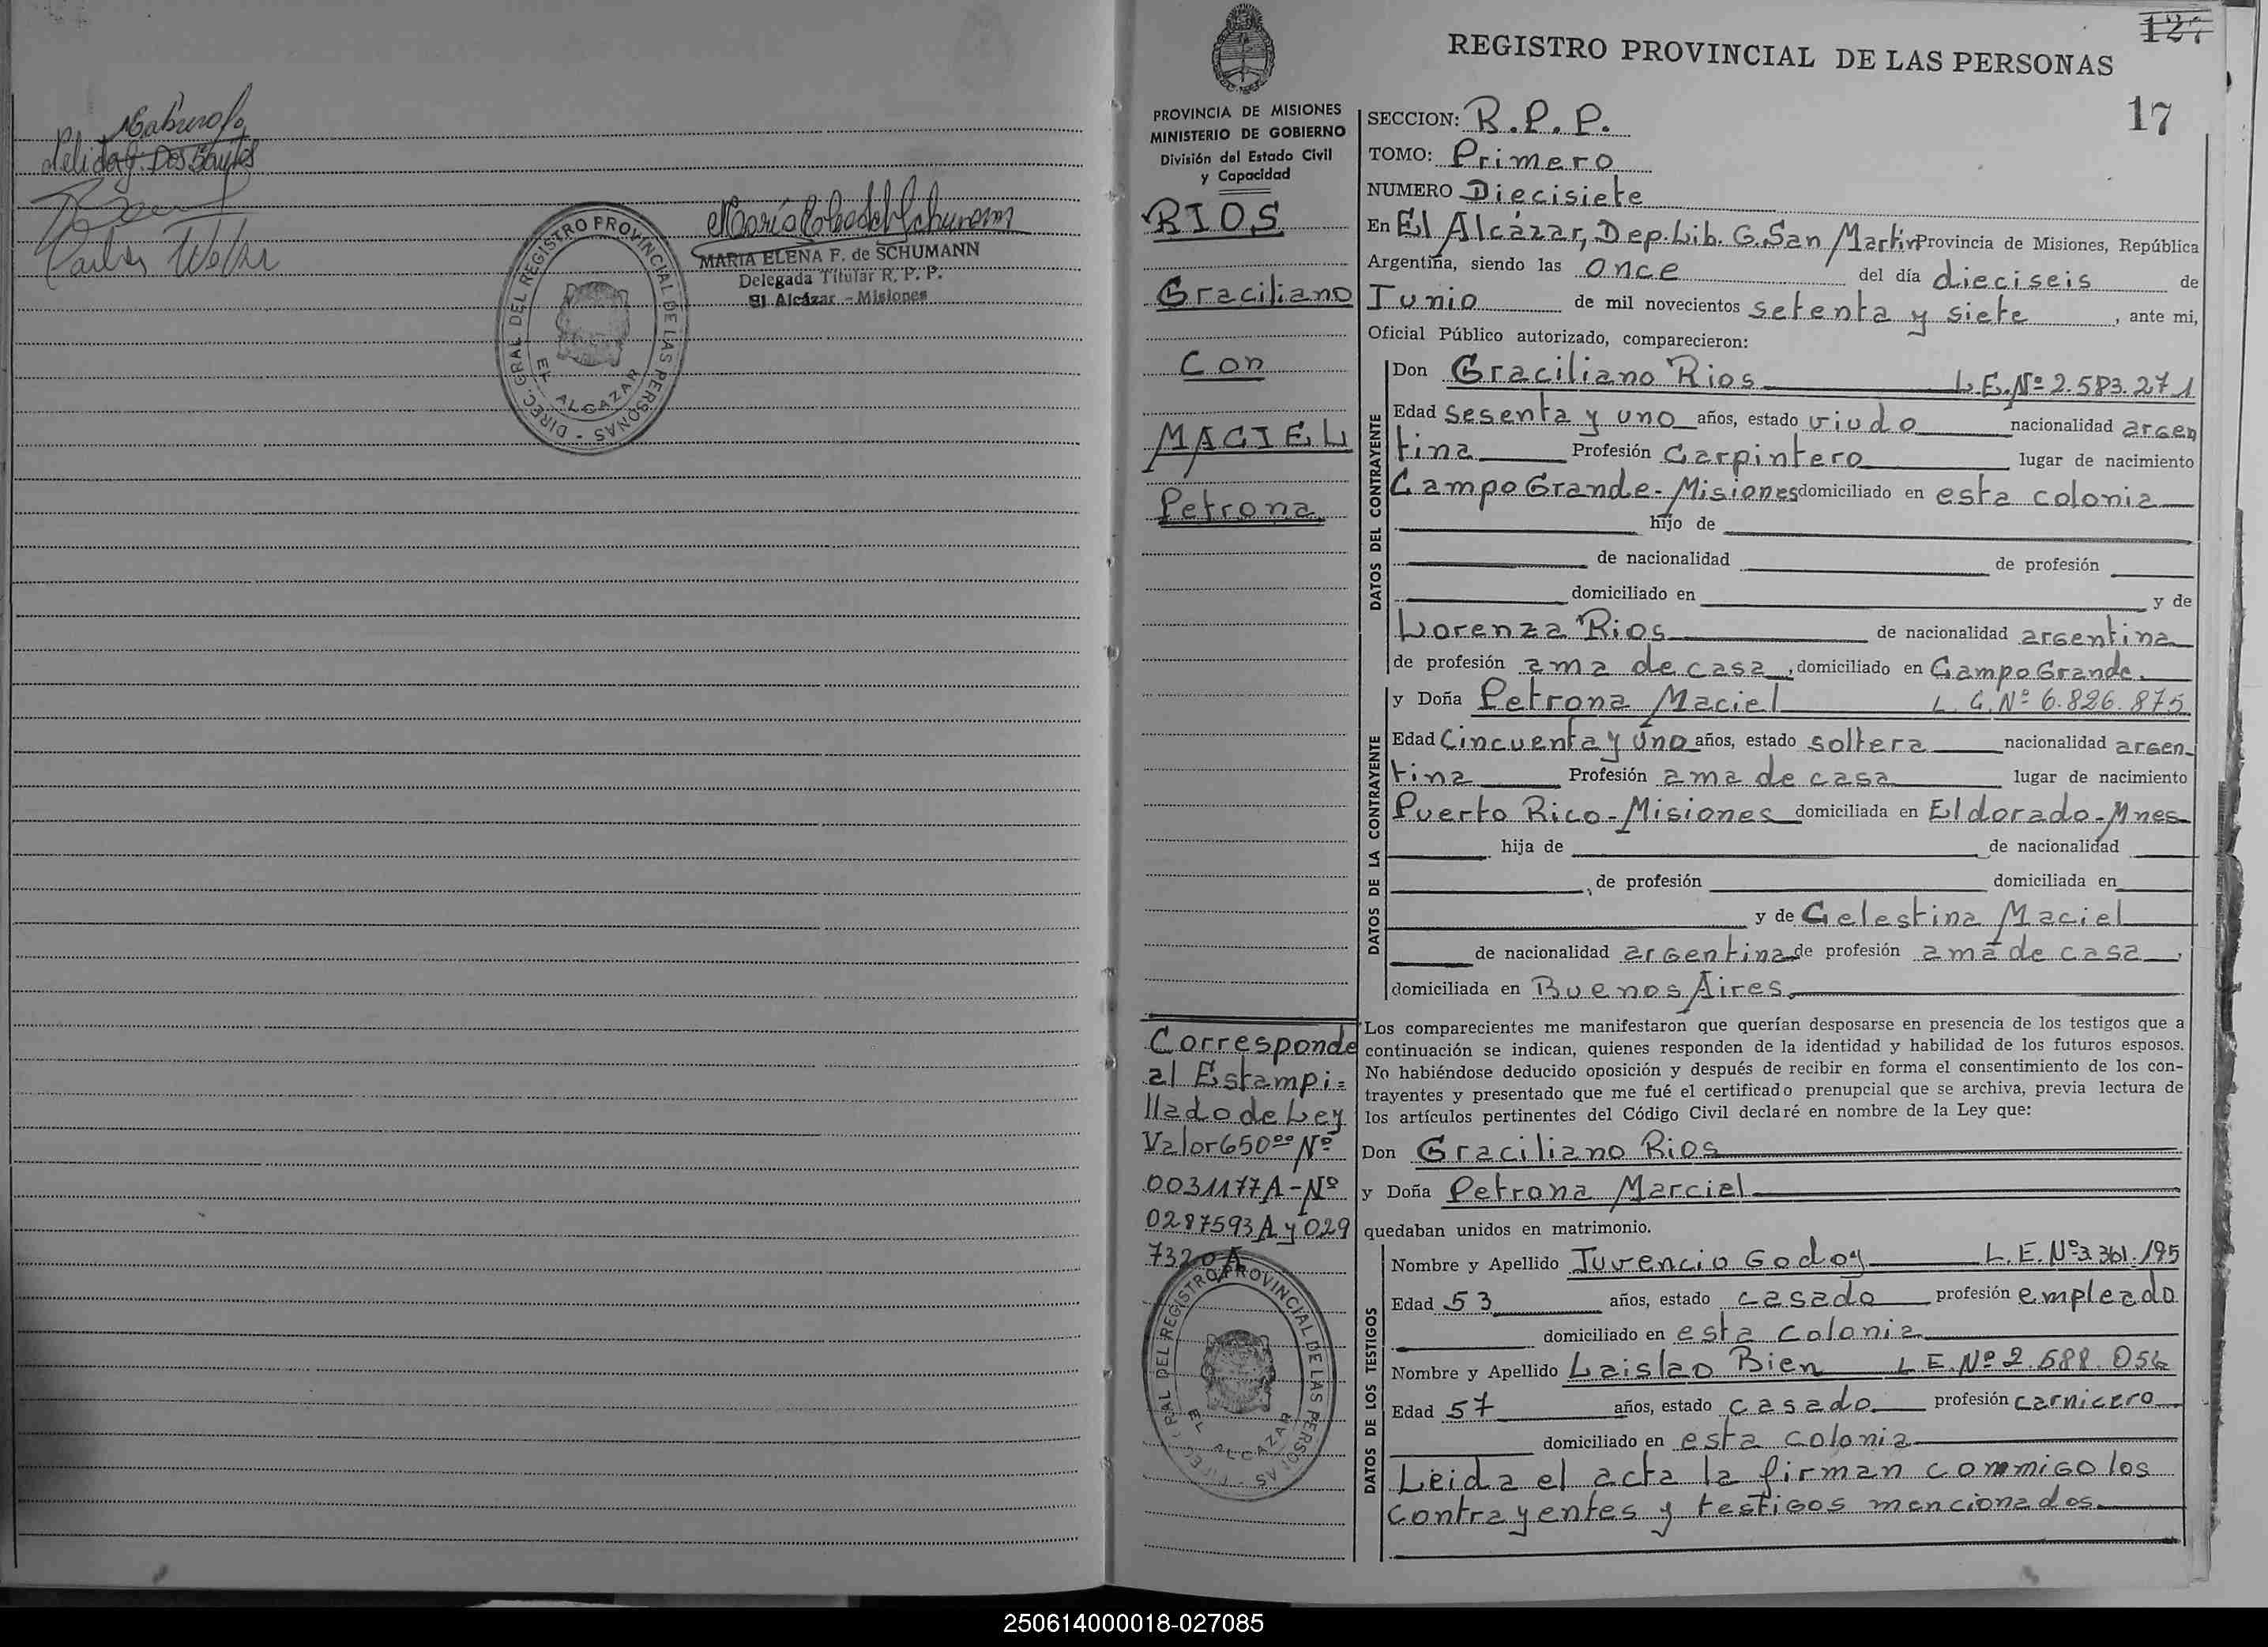 Nelida G. Dos Santos
Carlos Weber
MARIA ELENA F. de SCHUMANN
Delegada Titular R. P. P.
El Alcázar - Misiones
DIREC. GRAL DEL REGISTRO PROVINCIAL DE LAS PERSONAS -
EL ALCAZAR
127
REGISTRO PROVINCIAL DE LAS PERSONAS
17
PROVINCIA DE MISIONES
MINISTERIO DE GOBIERNO
División del Estado Civil
y Capacidad
RIOS
Graciliano
Con
MACIEL
Petrona
Corresponde
al Estampi=
llado de Ley
Valor 650⁰⁰ Nº
0031177A - Nº
0287593A y 029
7320A
DEL REGISTRO PROVINCIAL DE LAS PERSONAS
EL ALCAZAR
SECCION: R.P.P.
TOMO: Primero
NUMERO Diecisiete
En El Alcázar, Dep. Lib. G. San Martin Provincia de Misiones, República
Argentina, siendo las once del día dieciseis de
Junio de mil novecientos setenta y siete, ante mi,
Oficial Público autorizado, comparecieron:
DATOS DEL CONTRAYENTE
Don Graciliano Rios L.E. Nº 2.583.271
Edad sesenta y uno años, estado viudo nacionalidad argen
tina Profesión Carpintero lugar de nacimiento
Campo Grande - Misiones domiciliado en esta colonia
hijo de
de nacionalidad de profesión
domiciliado en y de
Lorenza Rios de nacionalidad argentina
de profesión ama de casa, domiciliado en Campo Grande.
DATOS DE LA CONTRAYENTE
y Doña Petrona Maciel L. C. Nº 6.826.875
Edad Cincuenta y uno años, estado soltera nacionalidad argen-
tina Profesión ama de casa lugar de nacimiento
Puerto Rico - Misiones domiciliada en Eldorado - Mnes
hija de de nacionalidad
, de profesión domiciliada en
y de Celestina Maciel
de nacionalidad argentina de profesión ama de casa,
domiciliada en Buenos Aires.
Los comparecientes me manifestaron que querían desposarse en presencia de los testigos que a
continuación se indican, quienes responden de la identidad y habilidad de los futuros esposos.
No habiéndose deducido oposición y después de recibir en forma el consentimiento de los con-
trayentes y presentado que me fué el certificado prenupcial que se archiva, previa lectura de
los artículos pertinentes del Código Civil declaré en nombre de la Ley que:
Don Graciliano Rios
y Doña Petrona Marciel
quedaban unidos en matrimonio.
DATOS DE LOS TESTIGOS
Nombre y Apellido Juvencio Godoy L.E. Nº 3.361.195
Edad 53 años, estado casado profesión empleado
domiciliado en esta colonia
Nombre y Apellido Laislao Bien L E. Nº 2.588.056
Edad 57 años, estado casado profesión carnicero
domiciliado en esta colonia
Leida el acta la firman commigo los
contrayentes y testigos mencionados.
250614000018-027085